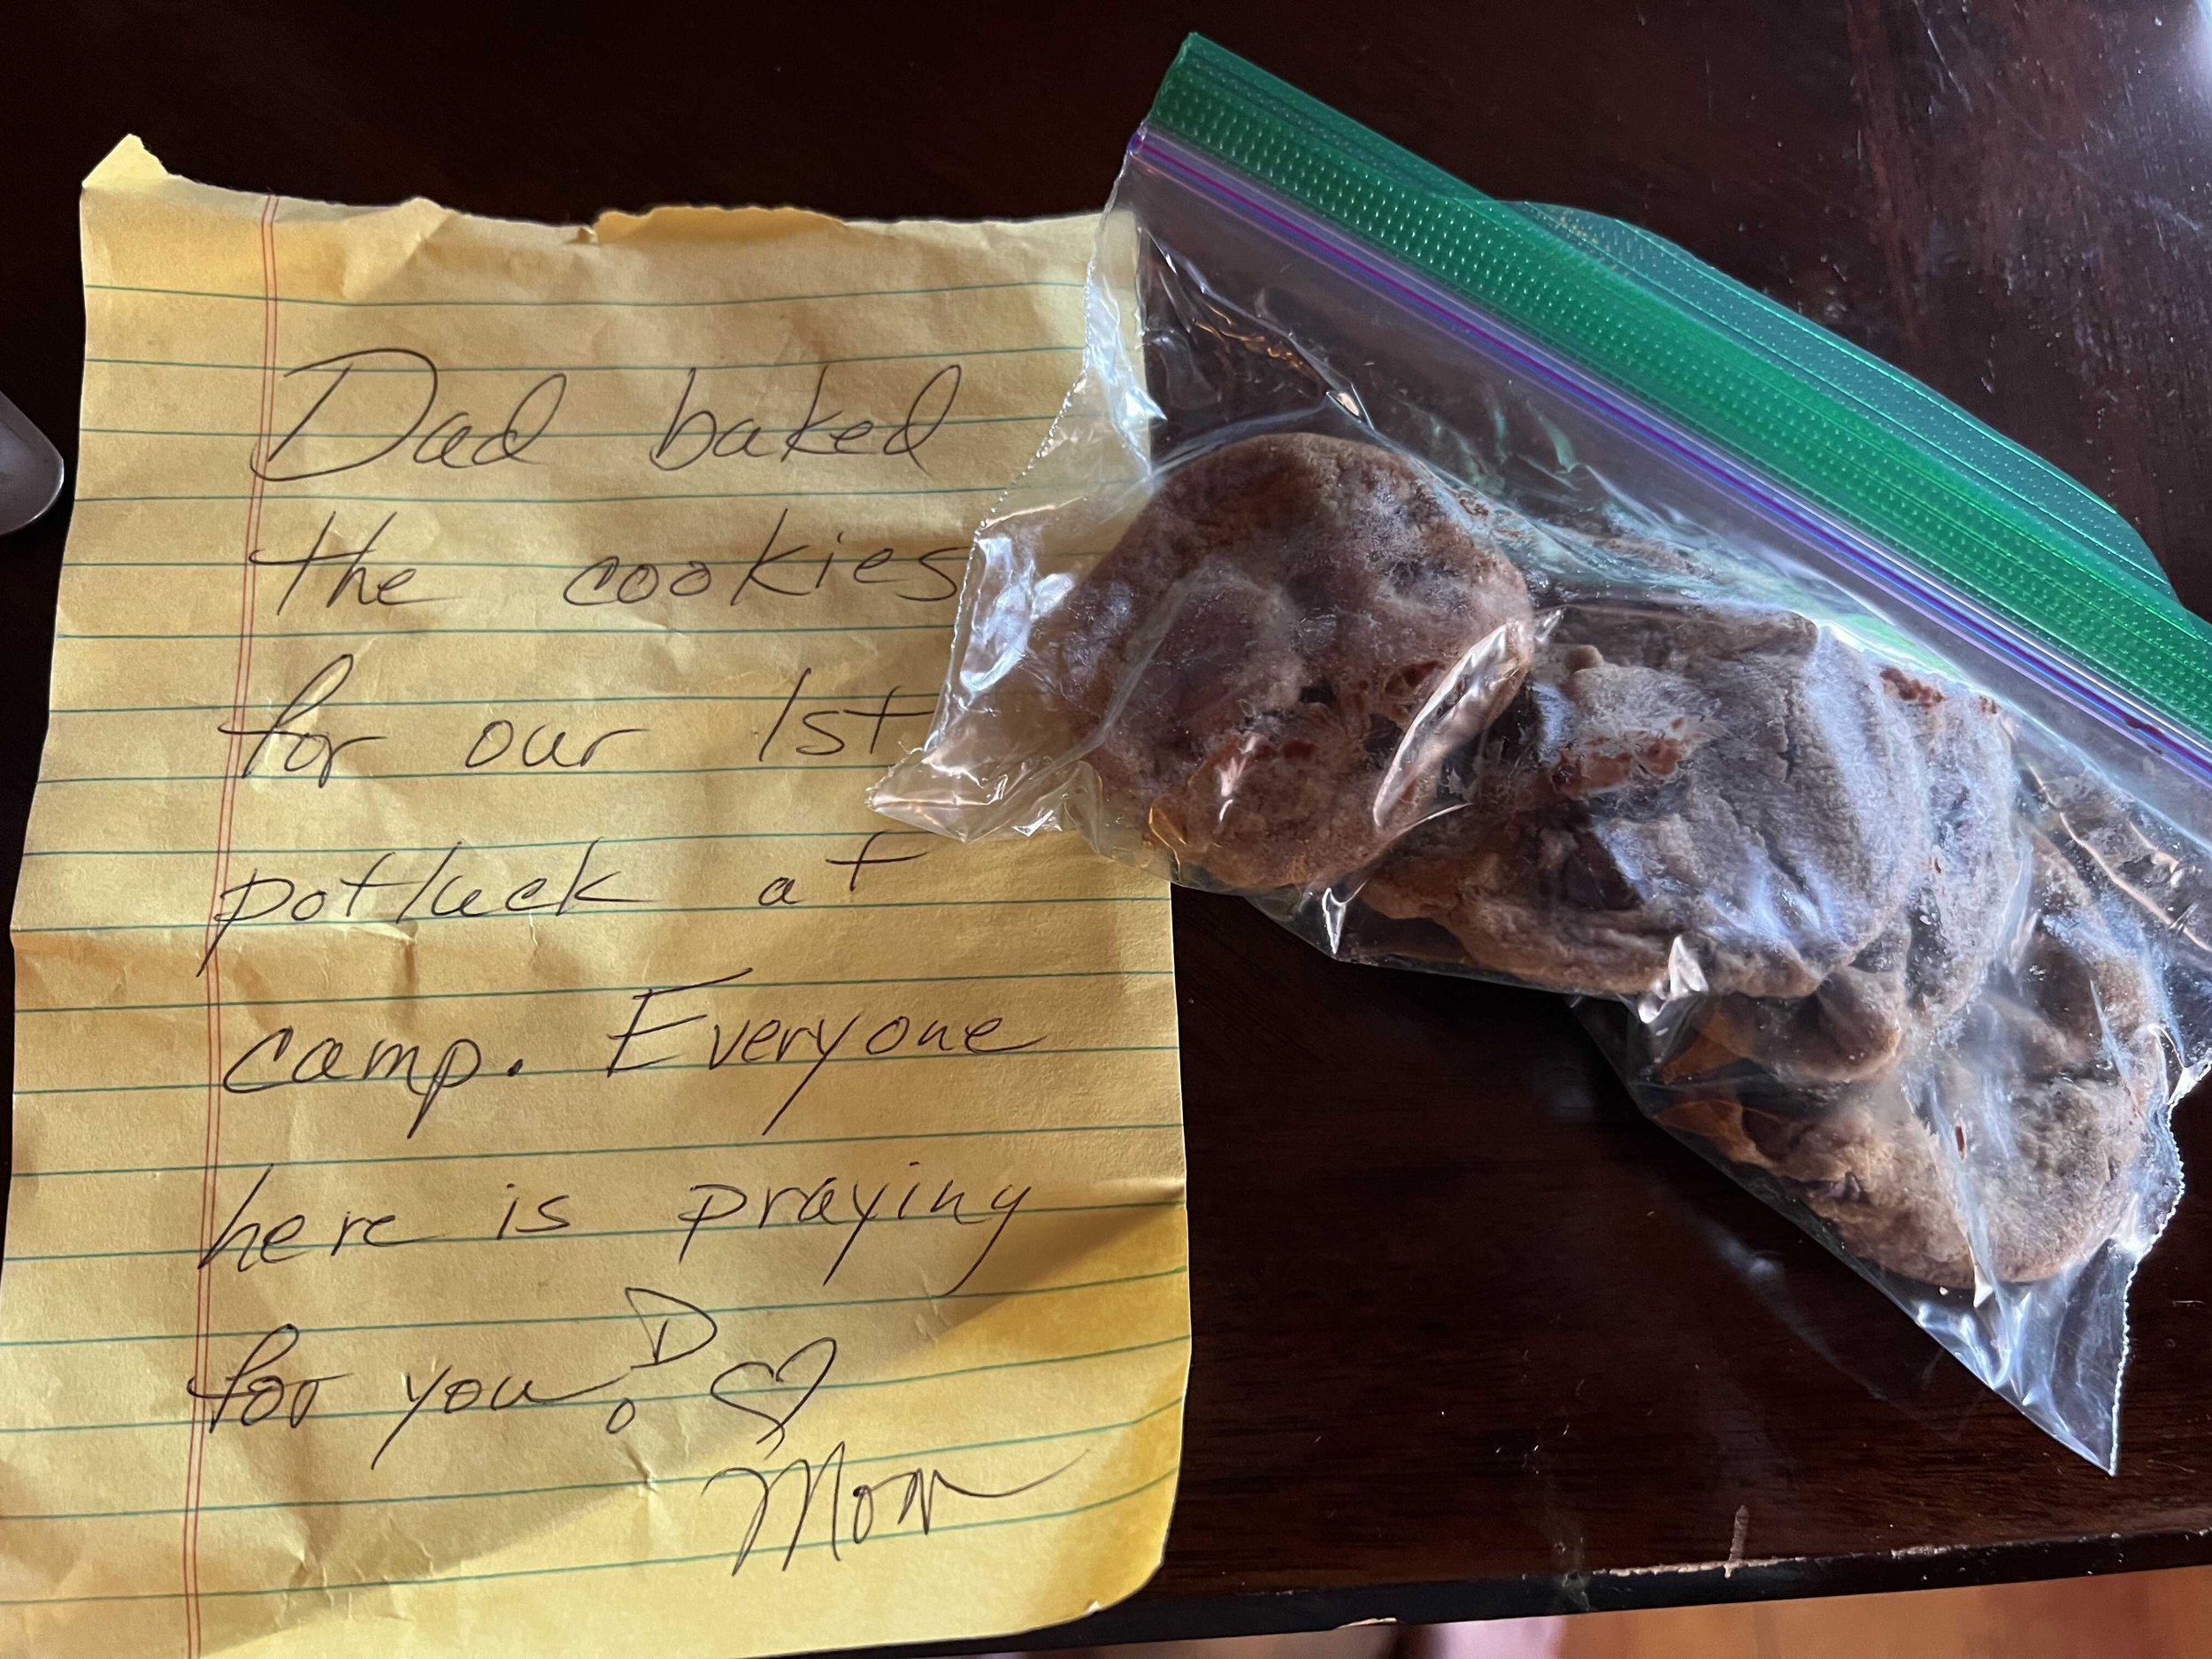 Dad baked
the cookies
for our 1st
potluck at
camp. Everyone
here is praying
for you! ♡
Mom